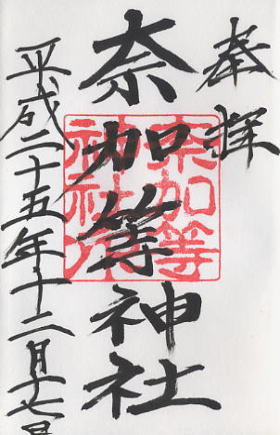 奉拝
奈加等神社
奈加等
神社
平成二十五年十二月十七日